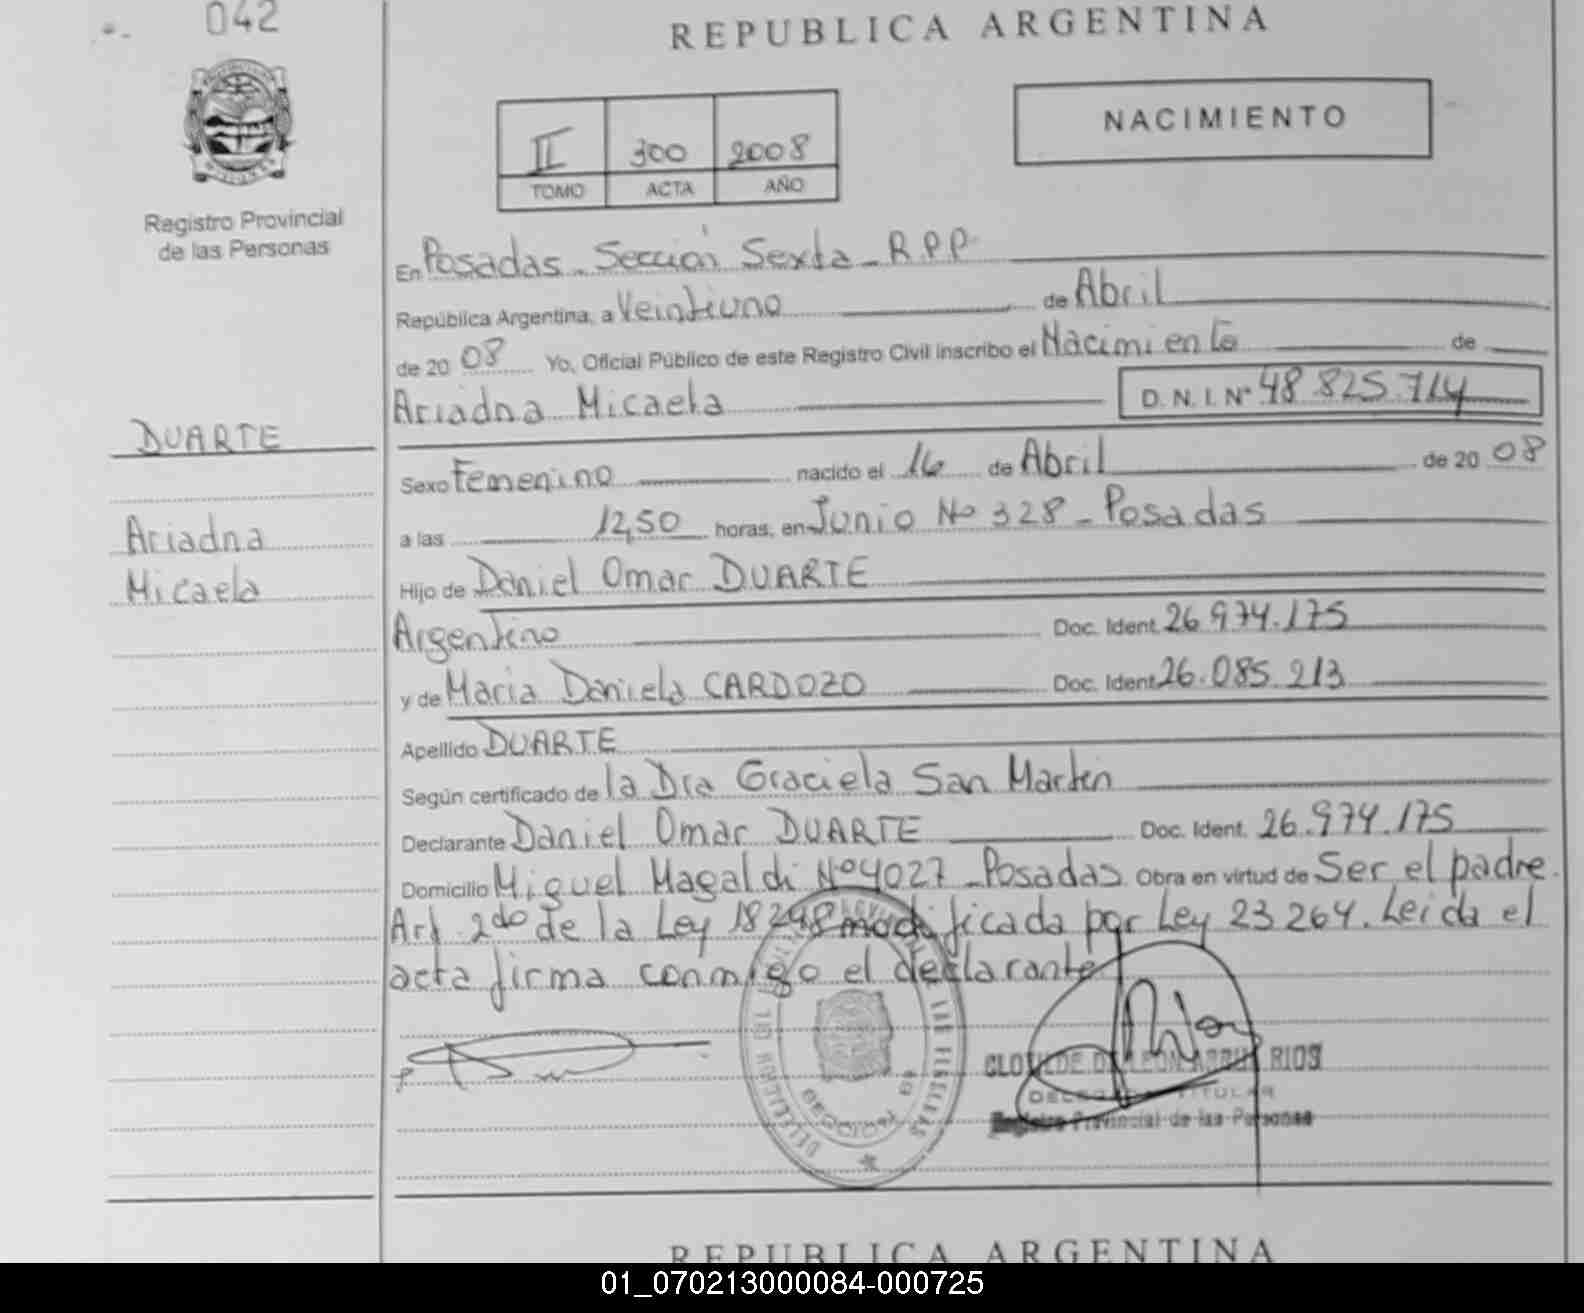 042
REPUBLICA ARGENTINA
NACIMIENTO
II 300 2008
TOMO ACTA AÑO
Registro Provincial
de las Personas
En Posadas - Sección Sexta - R.P.P.
República Argentina, a Veintiuno de Abril
de 2008 Yo, Oficial Público de este Registro Civil inscribo el Nacimiento de
Ariadna Micaela D.N.I. Nº 48.825.714
DUARTE
Sexo Femenino nacido el 16 de Abril de 2008
a las 12,50 horas, en Junio Nº 328 - Posadas
Ariadna
Micaela
Hijo de Daniel Omar DUARTE
Argentino Doc. Ident. 26.974.175
y de Maria Daniela CARDOZO Doc. Ident. 26.085.213
Apellido DUARTE
Según certificado de la Dra Graciela San Martin
Declarante Daniel Omar DUARTE Doc. Ident. 26.974.175
Domicilio Miguel Magaldi Nº 4027 - Posadas. Obra en virtud de Ser el padre.
Art. 2do de la Ley 18248 modificada por Ley 23264. Leida el
acta firma conmigo el declarante
RIOS
TITULAR
Registro Provincial de las Personas
REPUBLICA ARGENTINA
01_070213000084-000725